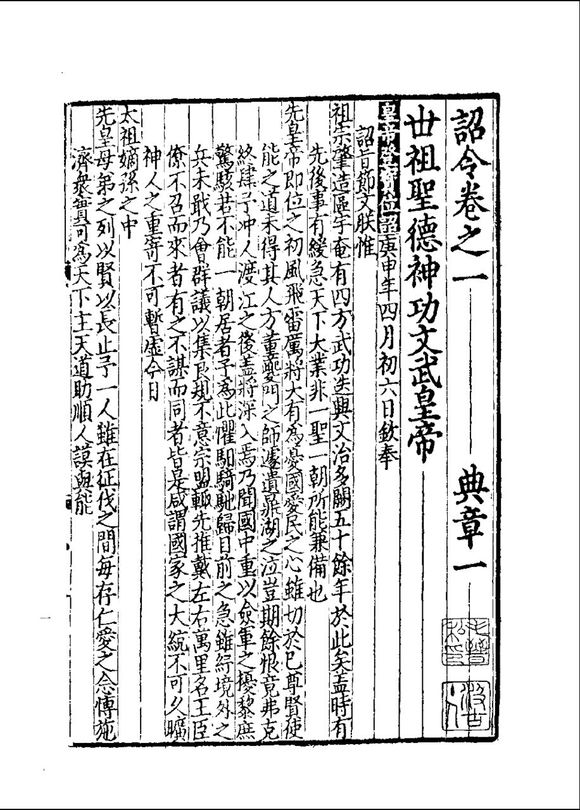 詔令卷之一 典章一
世祖聖德神功文武皇帝
皇帝登寶位詔 庚申年四月初六日欽奉
詔旨節文朕惟
祖宗肇造區宇奄有四方武功迭興文治多闕五十餘年於此矣盖時有
先後事有緩急天下大業非一聖一朝所能兼備也
先皇帝即位之初風飛雷厲將大有為憂國愛民之心雖切於己尊賢使
能之道未得其人方董夔門之師遽遺鼎湖之泣豈期餘恨竟弗克
終肆予冲人渡江之後盖將深入焉乃聞國中重以僉軍之擾黎庶
驚駭若不能一朝居者予為此懼馹騎馳歸目前之急雖紓境外之
兵未戢乃會群議以集良規不意宗盟輒先推戴左右萬里名王臣
僚不召而來者有之不謀而同者皆是咸謂國家之大統不可久曠
神人之重寄不可暫虛今日
太祖嫡孫之中
先皇母弟之列以賢以長止予一人雖在征伐之間每存仁愛之念慱施
濟衆實可為天下主天道助順人謨與能